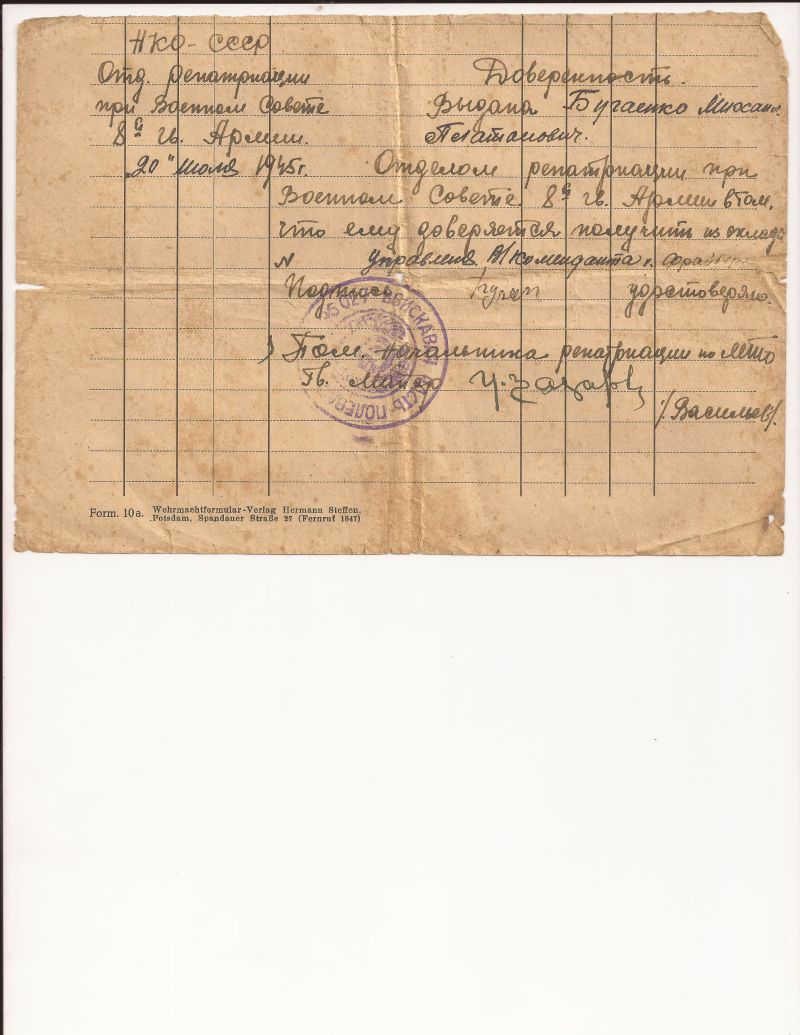 НКО - СССР
Отд. репатриации
при Военном Совете
8й гв. Армии.
"20" июля 1945 г.
Доверенность.
Выдана Бугаенко Михаил
Платанович.
Отделом репатриации при
Военном Совете 8й гв. Армии в том,
что ему доверяется получить из склада
N управления В/коменданта г.
Подпись удостоверяю.
Пом. начальника репатриации по
Гв. Майор
/Васильев/.
ВОЙСКОВАЯ ЧАСТЬ ПОЛЕВ
Form. 10a. Wehrmachtformular-Verlag Hermann Steffen,
Potsdam, Spandauer Straße 27 (Fernruf 1847)